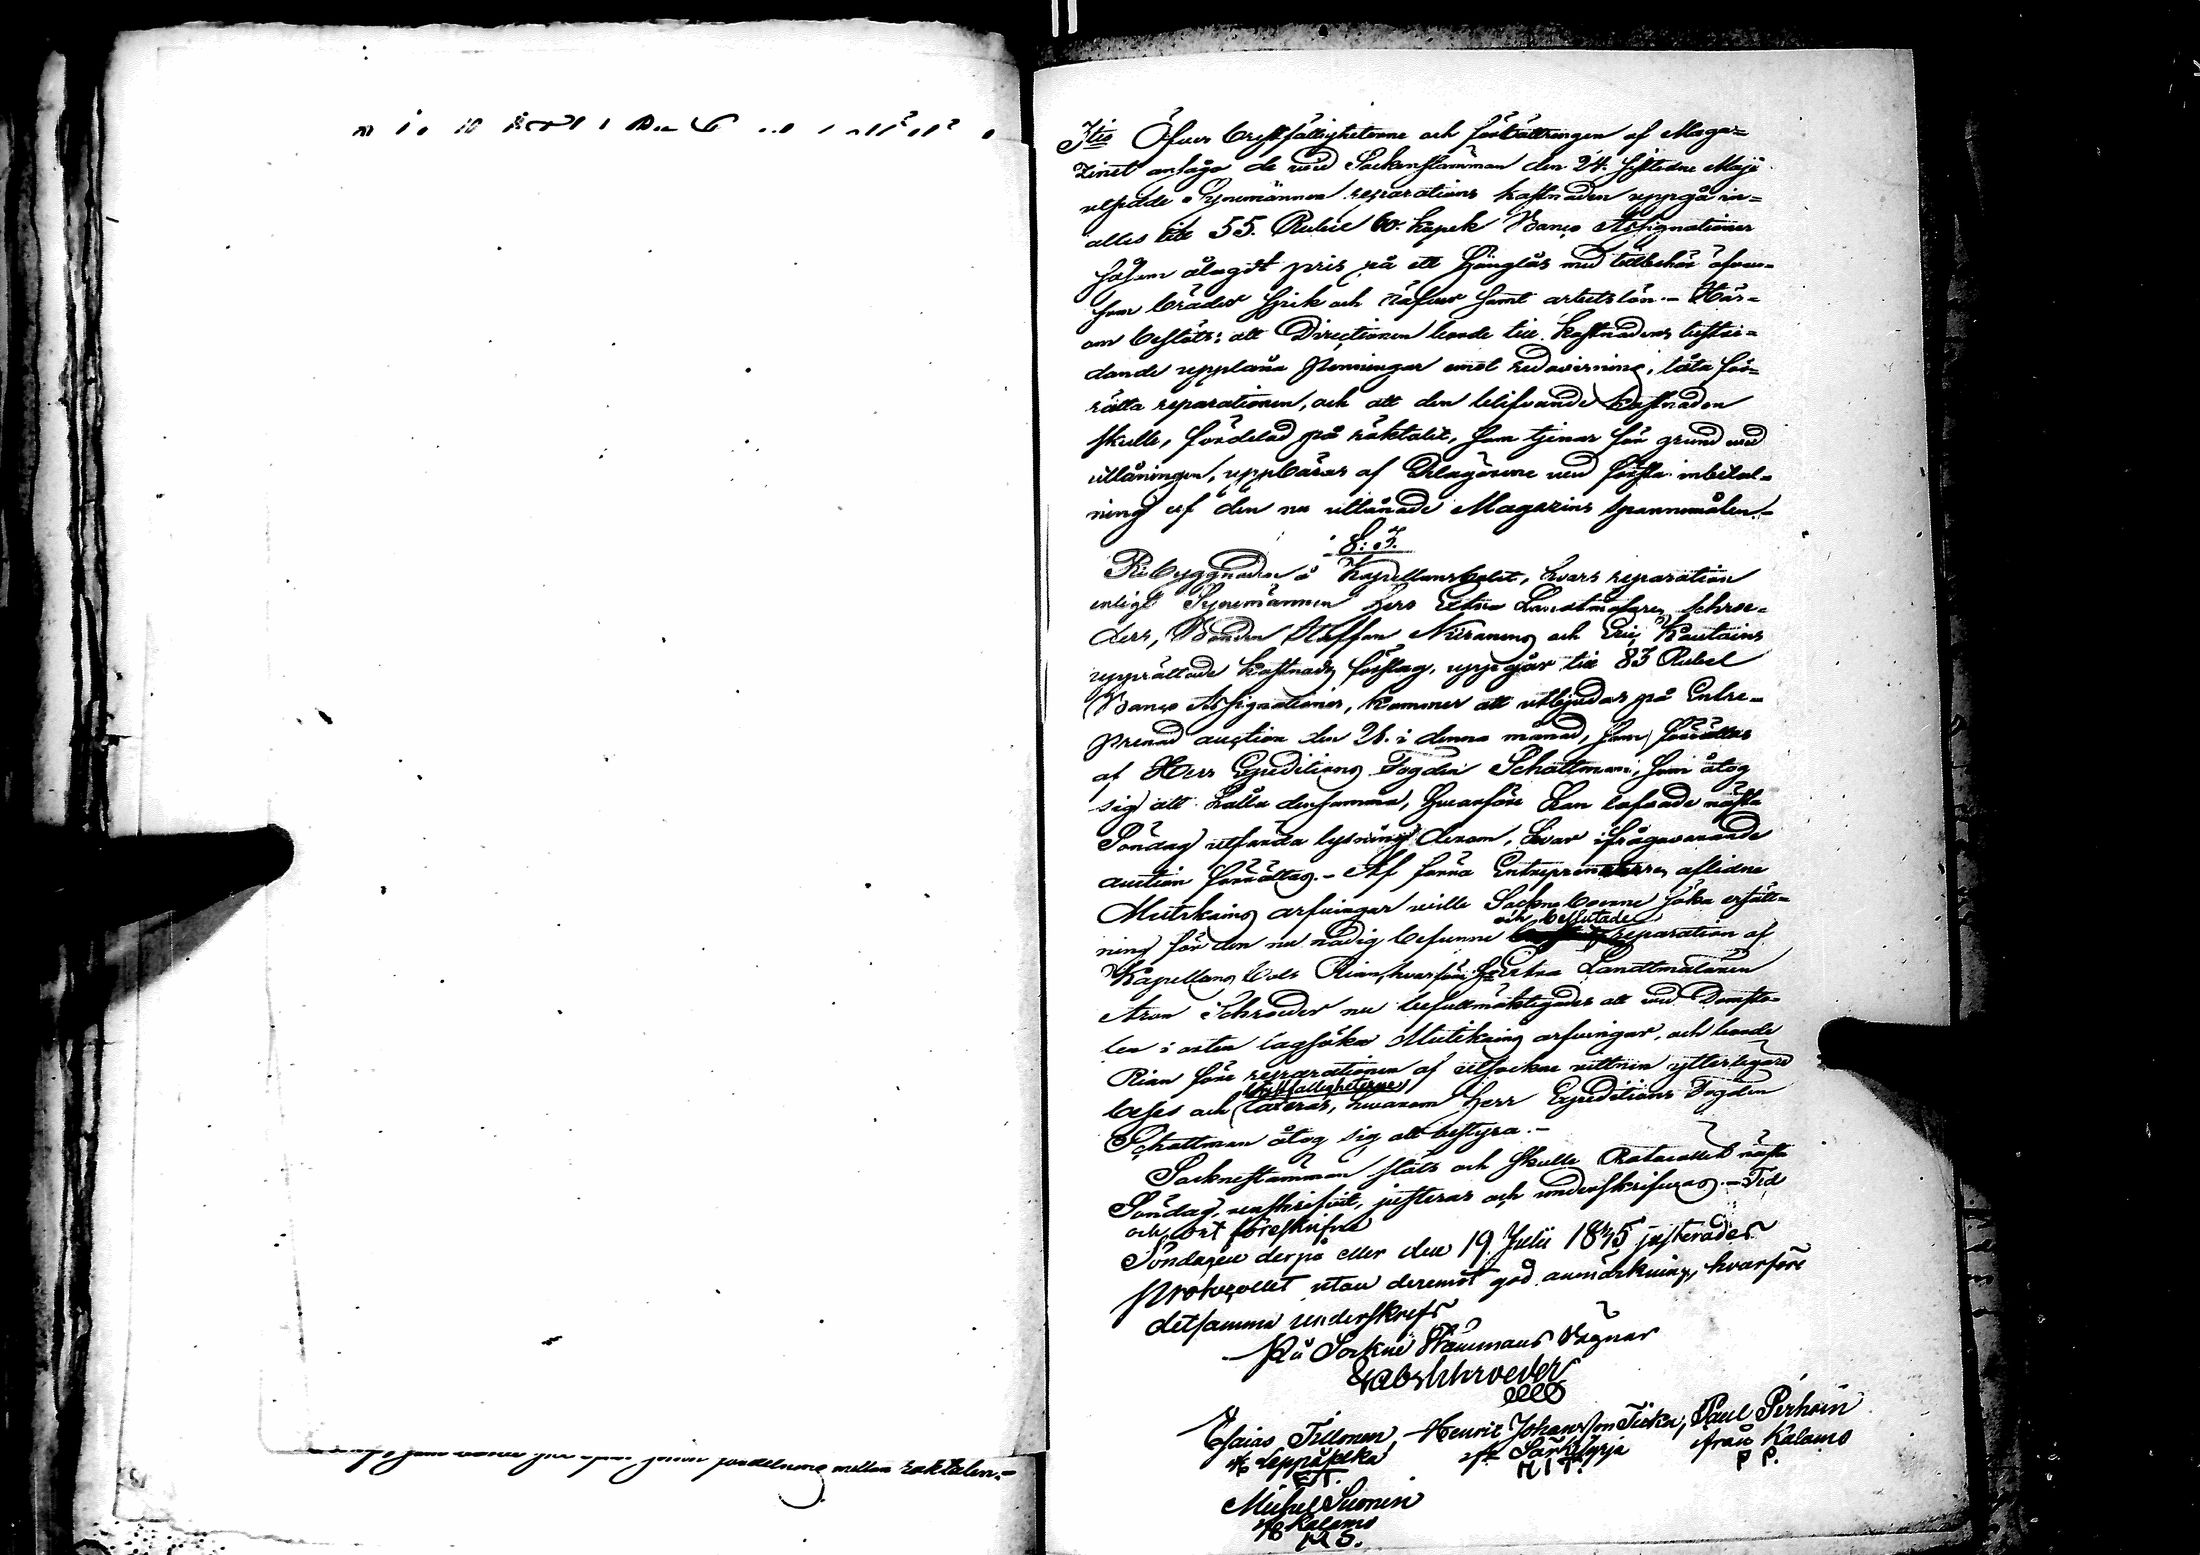 fördelning mellan röktalen.-
7tio Öfver bristfälligheterne och förbättringen af Maga=
zinet anlägo de wid Sockenstämman den 24. sistledne Maji
utsedde Synemännen reparations kostnaden uppgå in=
alles till 55. Rubel 60. kopek Banco Assignationer
som pris på ett Hänglås med tillbehör
som bräder spik och näfver samt arbetslön.- Här=
om beslöts: att Directionen borde till kostnadens bestri=
dande upplåna penningar emot redovisning, låta för=
rätta reparationen, och att den blifvande kostnaden
skulle, fördelad på röktalet, som tjenar för grund med
utlåningen, uppbäras af Delägarne ved första inbetal=
ning af den nu utlånade Magazins spannmålen.-
§: 8.
Ribyggnaden å Kapellansbolet, hvars reparation
enligt Synemännen Herr Extra Landtmätaren Schroe=
ders, Bonden Staffan Niiranens och Eric Kautains
upprättade kostnads förslag, uppgår till 83 Rubel
Banco Assignationer, kommer att utbjudas på Entre=
prenad auction den 26. i denna månad, som förrättas
af Herr Expeditions Fogden Schattman, som åtog
sig att hålla densamma, hvarföre han lofvade nästa
Söndag utfärda lysning derom, hvar ifrågavarande
auction förrättas.- Af förra Entreprenören aflidne
Mutikains arfvingar ville Sockneboerne söka ersätt=
ning för den nu nödig befunne och beslutade reparation af
Kapellans bols Rian, hvarföre Extra Landtmätaren
Aron Schroeder nu befullmäktigades att wid Domsto=
len i orten lagsöka Mutikains arfvingar, och borde
Rian före reparationen af utsockne vittnen ytterligare
beses och bristfälligheterne taxeras, hwarom Herr Expeditions Fogden
Schattman åtog sig att bestyra.-
Socknestämman slöts och skulle Protocollet nästa
Söndag, renskrifvit, justeras och underskrifvas.- Tid
och ort föreskrifne
Söndagen derpå eller den 19 Julii 1845 justerades
protocollet utan deremot gjord anmärkning, hvarföre
detsamma underskrefs
På Sockne Stämmans Vägnar
Schroeder
Esaias Tillonen, Henric Johansson Tiska, Paul Perhoin
Leppäselkä af Särkijerfvi från Kalamo
ET. HIT. P P.
Michel Suonin
Kalamo
M S.